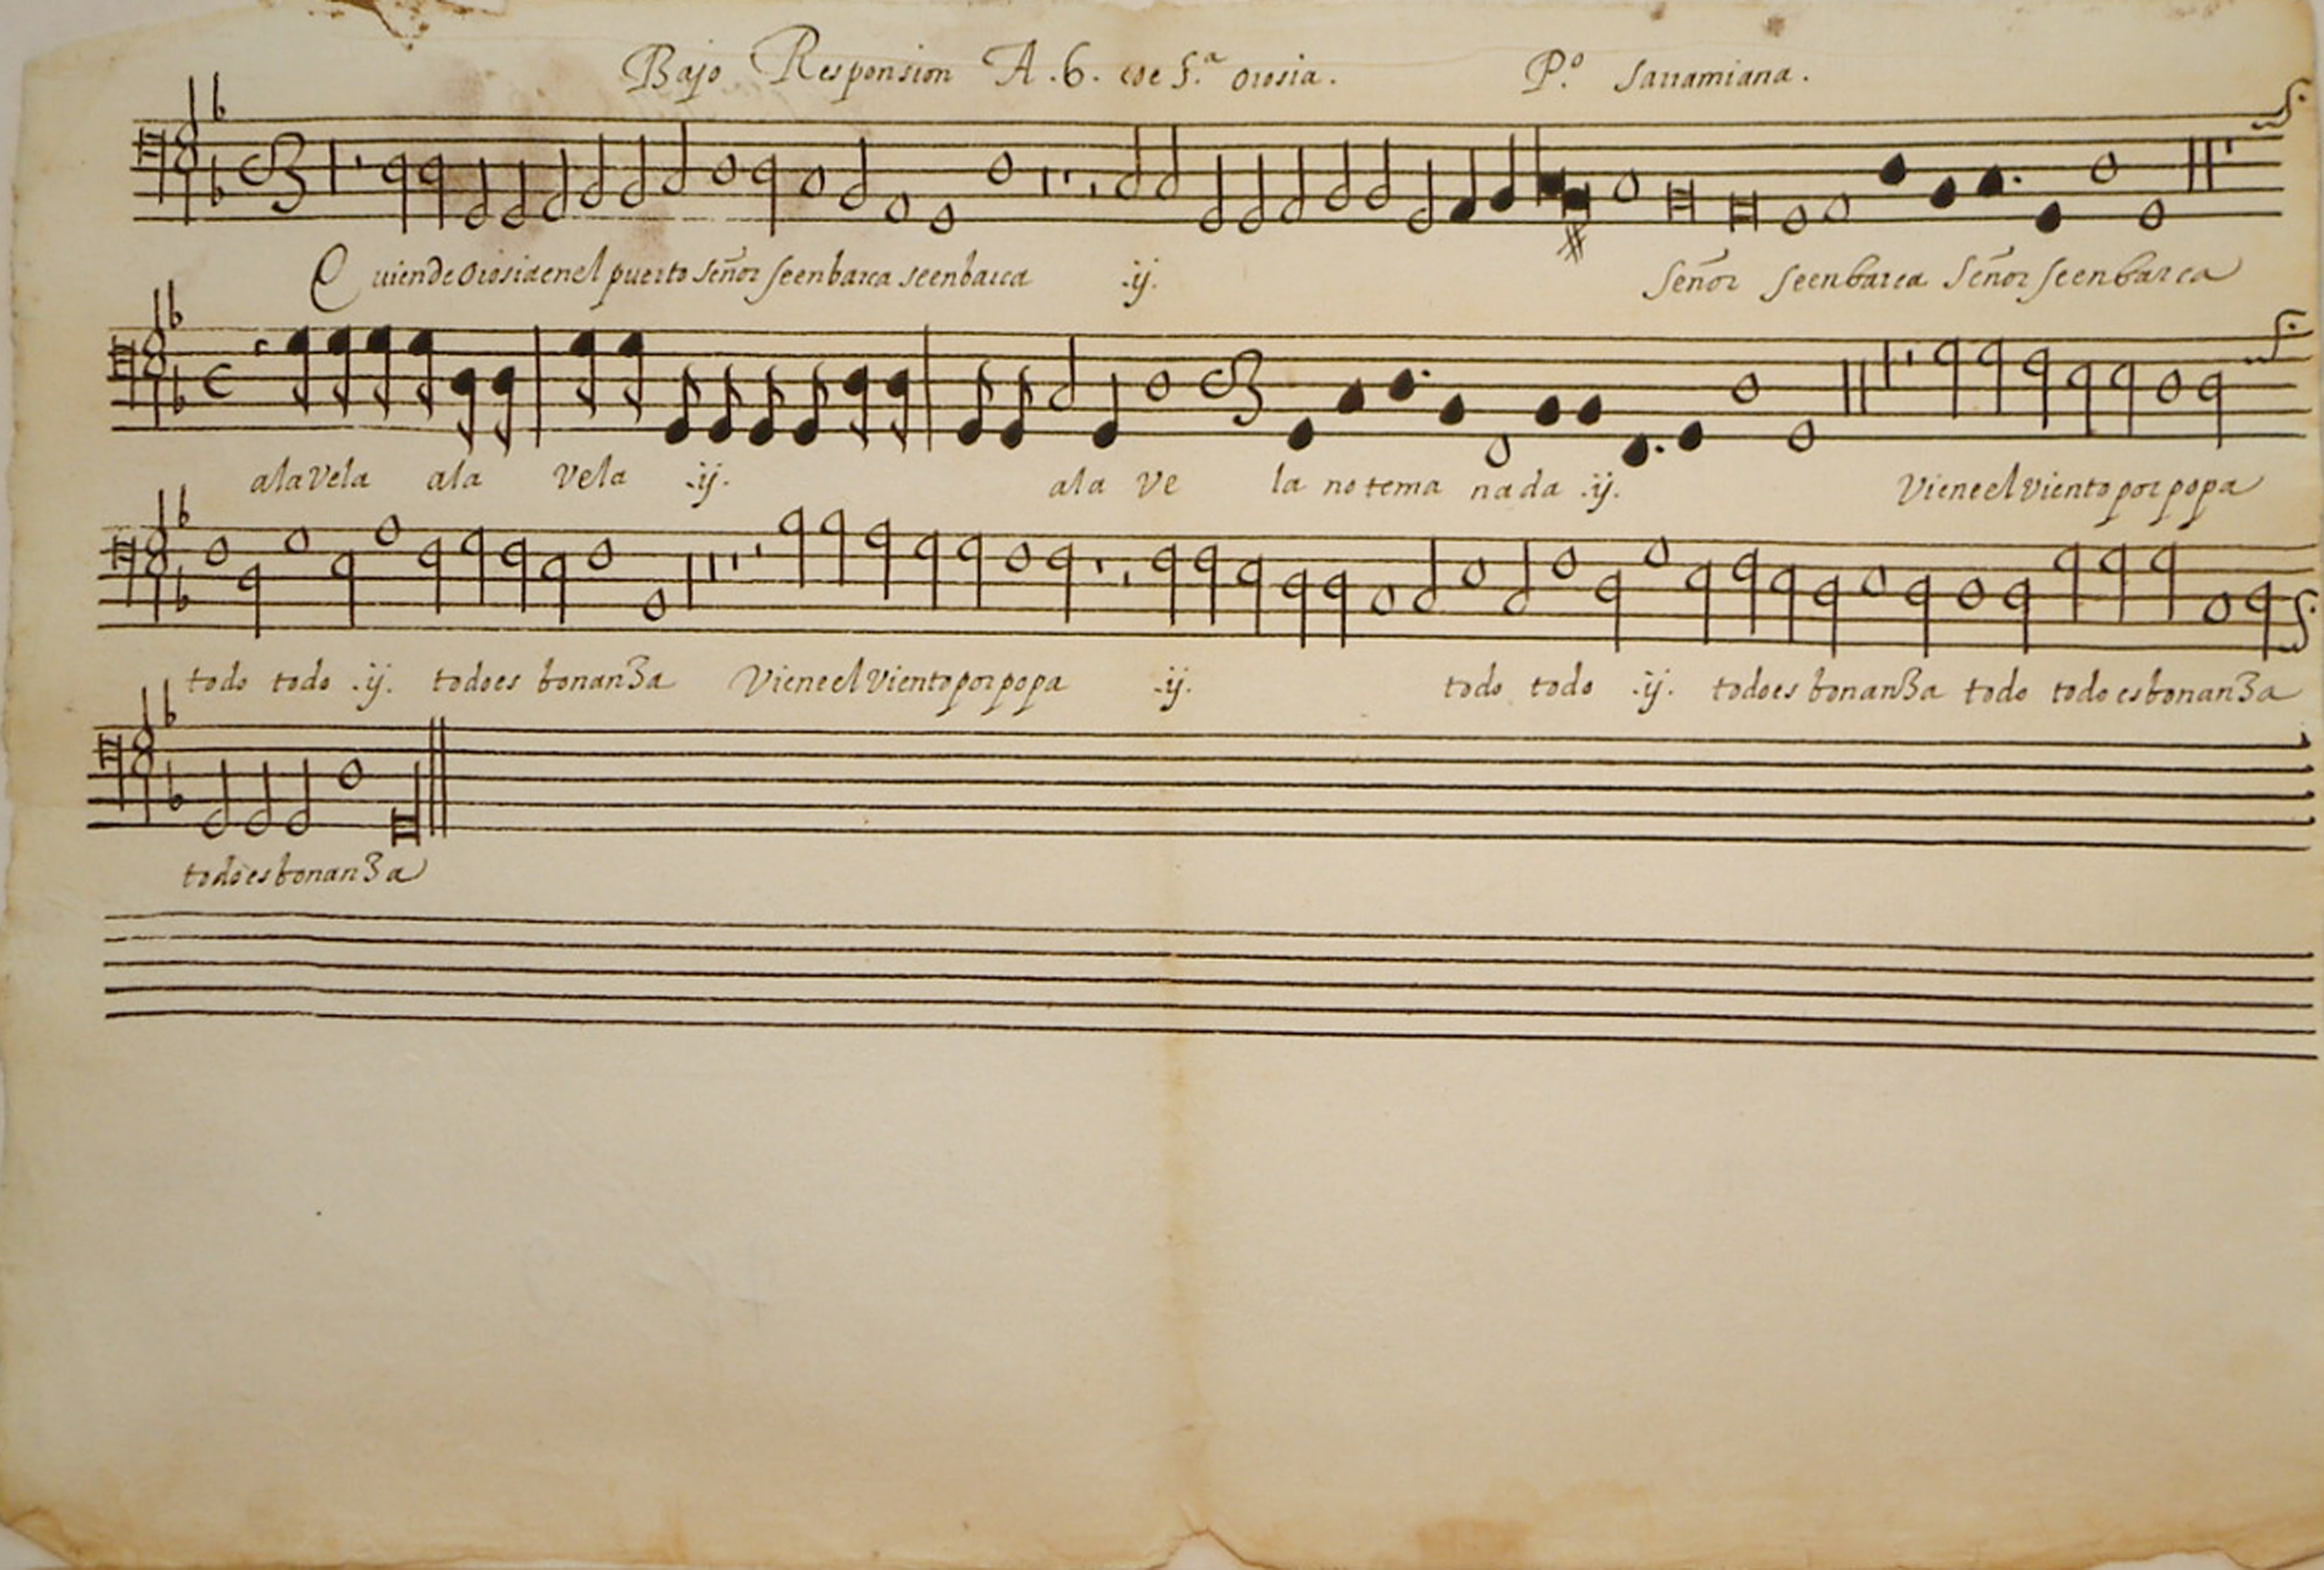 Bajo Responsion A.6. de S.ª Orosia. P.º Sarramiana.
Quien de Orosia en el puerto Señor se enbarca se enbarca .ij. Señor se enbarca Señor se enbarca
a la vela a la vela .ij. a la ve la no tema nada .ij. Viene el viento por popa
todo todo .ij. todo es bonanza Viene el viento por popa .ij. todo todo .ij. todo es bonanza todo todo es bonanza
todo es bonanza